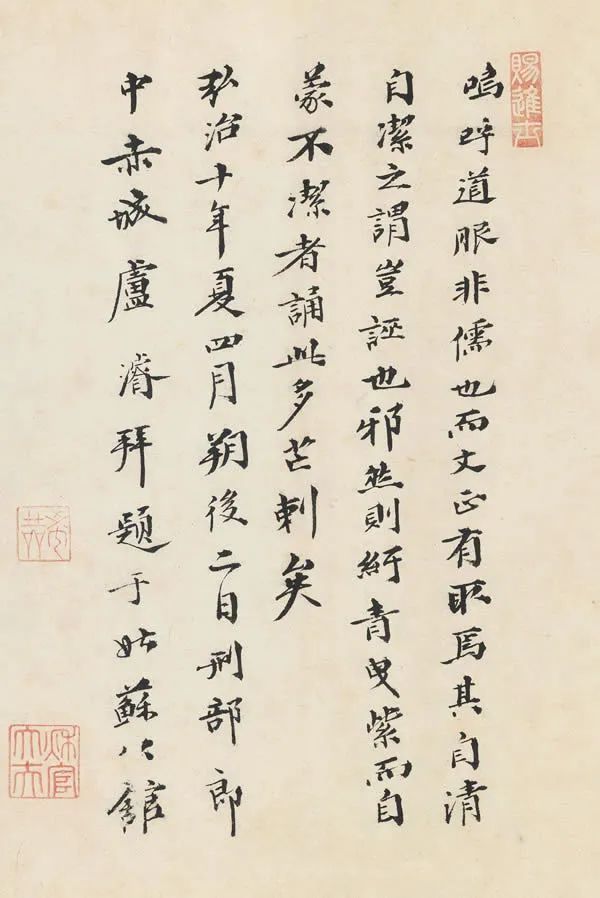 嗚呼道服非儒也而文正有取焉其自清
自潔之謂豈誣也邪然則紆青曳紫而自
蒙不潔者誦此多芒刺矣
弘治十年夏四月朔後二日刑部郎
中赤城盧濬拜題于姑蘇公館
賜進士
秋官大夫